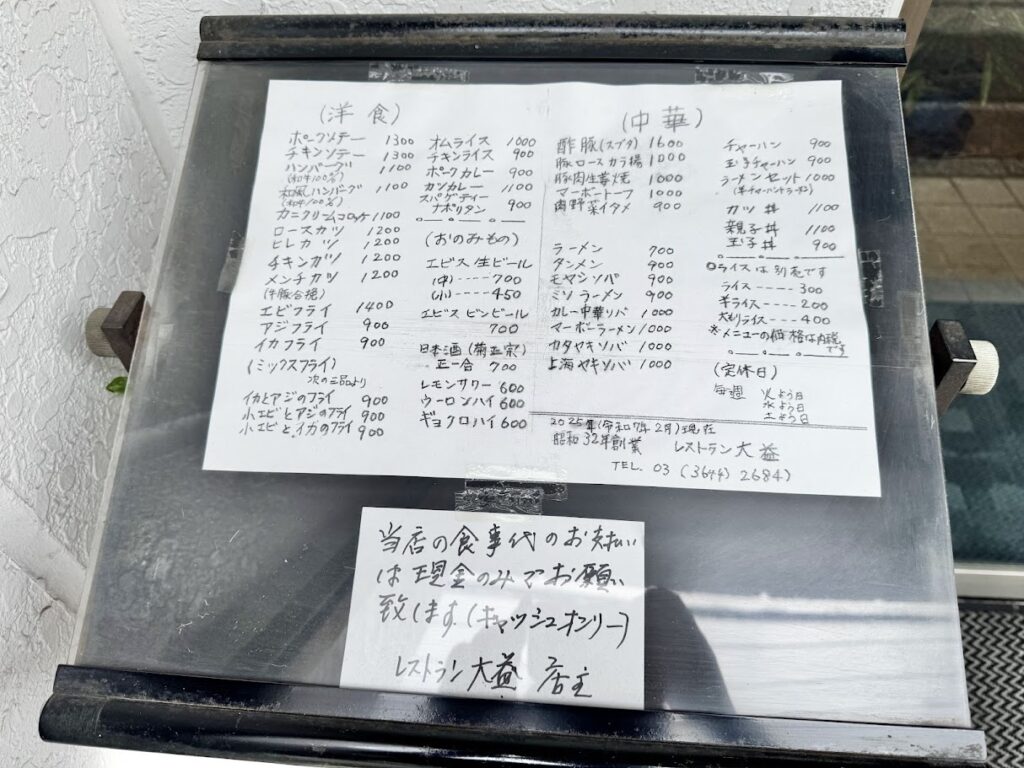 (洋食)
ポークソテー 1300
チキンソテー 1300
ハンバーグ 1100
(和牛100%)
和風ハンバーグ 1100
(和牛100%)
カニクリームコロッケ 1100
ロースカツ 1200
ヒレカツ 1200
チキンカツ 1200
メンチカツ 1200
(牛豚合挽)
エビフライ 1400
アジフライ 900
イカフライ 900
(ミックスフライ)
次の二品より
イカとアジのフライ 900
小エビとアジのフライ 900
小エビとイカのフライ 900
オムライス 1000
チキンライス 900
ポークカレー 900
カツカレー 1100
スパゲティー
ナポリタン 900
(おのみもの)
エビス生ビール
(中)----700
(小)----450
エビスビンビール
700
日本酒(菊正宗)
正一合 700
レモンサワー 600
ウーロンハイ 600
ギョクロハイ 600
(中華)
酢豚(スブタ) 1600
豚ロースカラ揚 1000
豚肉生姜焼 1000
マーボートーフ 1000
肉野菜イタメ 900
ラーメン 700
タンメン 900
モヤシソバ 900
ミソラーメン 900
カレー中華ソバ 1000
マーボーラーメン 1000
カタヤキソバ 1000
上海ヤキソバ 1000
チャーハン 900
玉子チャーハン 900
ラーメンセット 1000
(半チャーハンとラーメン)
カツ丼 1100
親子丼 1100
玉子丼 900
○ライスは別売です
ライス----300
半ライス----200
大モリライス----400
※メニューの価格は内税
です
(定休日)
毎週 火よう日
水よう日
土よう日
2025年(令和7年2月)現在
昭和32年創業 レストラン大益
TEL. 03 (3644) 2684)
当店の食事代のお支払い
は現金のみでお願い
致します。(キャッシュオンリー)
レストラン 大益 店主